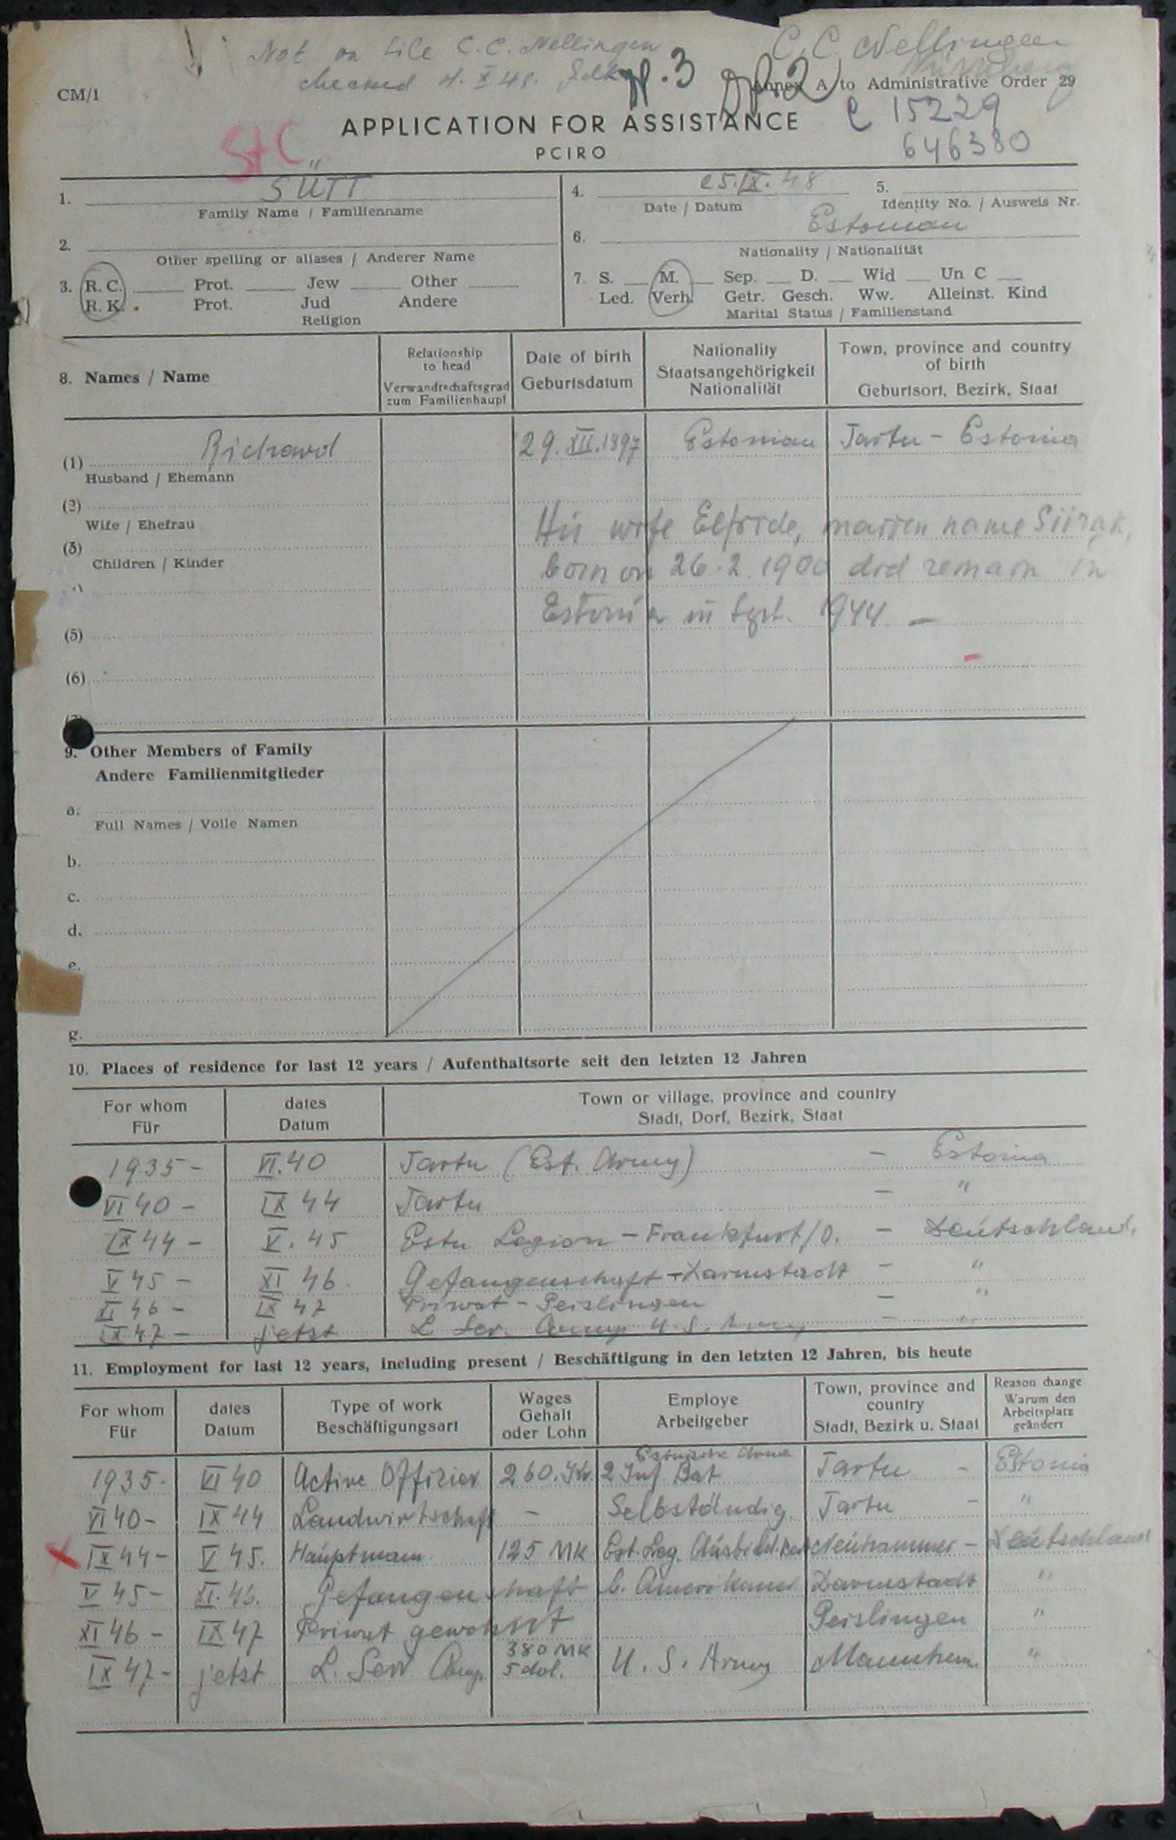 Not on file C.C. Nellingen
checked 4. X 48.
№. 3
C. C. Nellingen
CM/1
Annex A to Administrative Order 29
APPLICATION FOR ASSISTANCE
PCIRO
15229
646380
1. SÜTT
Family Name / Familienname
4. 25.IX.48
Date / Datum
5.
Identity No. / Ausweis Nr.
2.
Other spelling or aliases / Anderer Name
6. Estonian
Nationality / Nationalität
3. R. C. Prot. Jew Other
R. K. Prot. Jud Andere
Religion
7. S. M. Sep. D. Wid Un C
Led. Verh. Getr. Gesch. Ww. Alleinst. Kind
Marital Status / Familienstand
8. Names / Name
Relationship to head
Verwandtschaftsgrad zum Familienhaupt
Date of birth
Geburtsdatum
Nationality
Staatsangehörigkeit
Nationalität
Town, province and country of birth
Geburtsort, Bezirk, Staat
(1) Richard 29. XII. 1897 Estonian Tartu - Estonia
Husband / Ehemann
(2)
Wife / Ehefrau
His wife Elfride, maiden name
(3)
Children / Kinder
born on 26.2.1900 did remain in
Estonia in Sept. 1944. -
(5)
(6)
9. Other Members of Family
Andere Familienmitglieder
a.
Full Names / Volle Namen
b.
c.
d.
e.
g.
10. Places of residence for last 12 years / Aufenthaltsorte seit den letzten 12 Jahren
For whom
Für
dates
Datum
Town or village, province and country
Stadt, Dorf, Bezirk, Staat
1935 - VI.40 Tartu (Est. Army) - Estonia
VI 40 - IX 44 Tartu - "
IX 44 - V. 45 Estn Legion - Frankfurt/O. - Deutschland.
V 45 - XI 46. Gefangenschaft - Darmstadt - "
XI 46 - IX 47 Privat - Peislingen - "
IX 47 - jetzt L. Ser. Comp. U.S. Army - "
11. Employment for last 12 years, including present / Beschäftigung in den letzten 12 Jahren, bis heute
For whom
Für
dates
Datum
Type of work
Beschäftigungsart
Wages
Gehalt
oder Lohn
Employe
Arbeitgeber
Town, province and country
Stadt, Bezirk u. Staat
Reason change
Warum den
Arbeitsplatz
geändert
1935 - VI 40 Active Offizier 260. Kr. Estnische Armee 2 Inf Bat Tartu - Estonia
VI 40 - IX 44 Landwirtschaft - Selbständig. Tartu - "
IX 44 - V 45. Hauptmann 125 MK Est. Leg. Neuhammer - Deutschland
V 45 - XI. 46. Gefangenschaft b. Amerikaner Darmstadt "
XI 46 - IX 47 Privat gewohnt Peislingen "
IX 47 - jetzt L. Serv Comp. 380 MK 5 dol. U. S. Army Mannheim. "